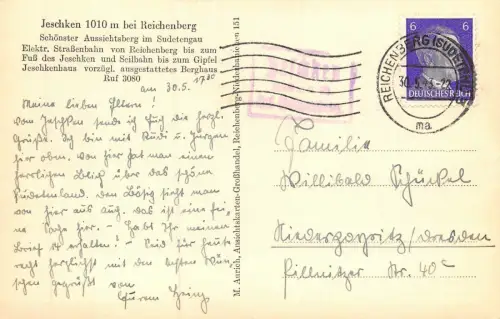 Jeschken 1010 m bei Reichenberg
Schönster Aussichtsberg im Sudetengau
Elektr. Straßenbahn von Reichenberg bis zum
Fuß des Jeschken und Seilbahn bis zum Gipfel
Jeschkenhaus vorzügl. ausgestattetes Berghaus
Ruf 3080
am 30.5.
Meine lieben Eltern!
vom Jeschken sende ich Euch die herzl.
Grüße. Ich bin mit Rudi u. Jürgen
hier oben. Von hier hat man einen
herrlichen Blick über das schöne
Sudetenland. Den Bösig sieht man
von hier aus auch. Das ist eine fei-
ne Sache hier. – Habt Ihr meinen
Brief erhalten? – Seid für heute
recht herzlichst mit den besten Wün-
schen gegrüßt von
Eurem Heinz
M. Anrich, Ansichtskarten-Großhandel, Reichenberg-Niederhanichen 151
6 6
DEUTSCHES REICH
REICHENBERG (SUDETENGAU)
30.5.
ma
Familie
Willibald Schückel
Niedergorbitz/Dresden
Pillnitzer Str. 40c